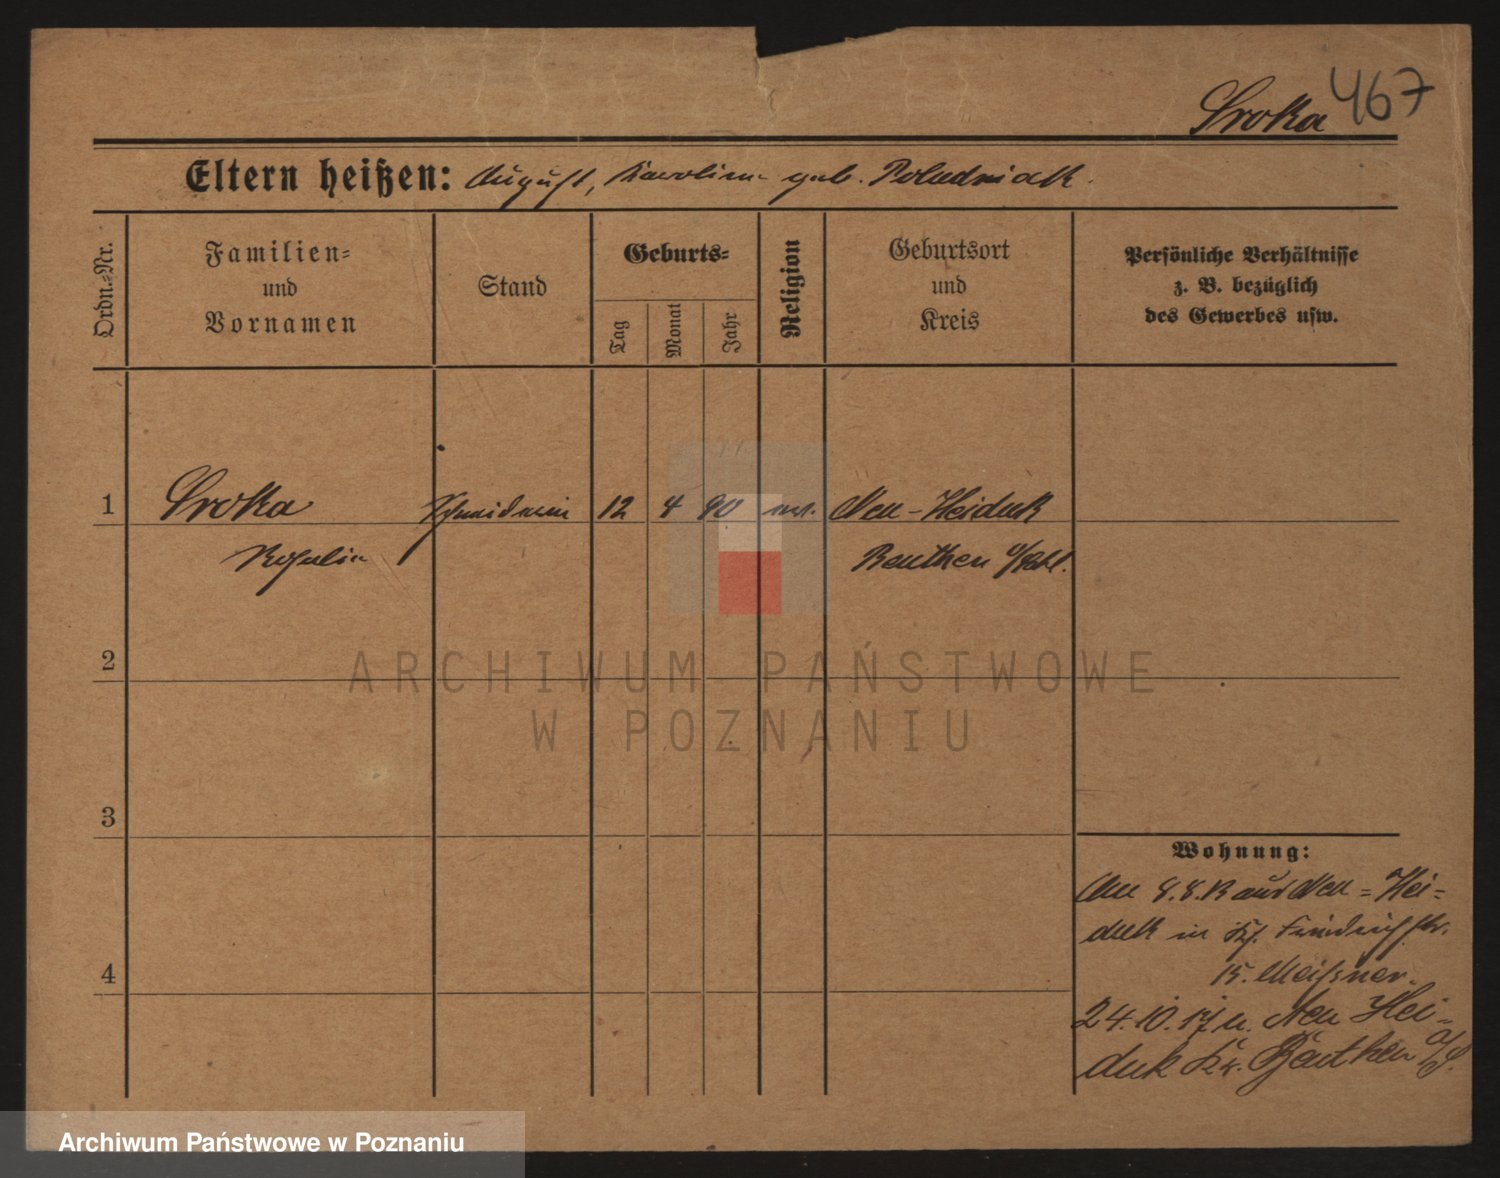 Sroka 467
Eltern heißen: August, Karolina geb. Poludniak.
Ordn.-Nr.
Familien-
und
Vornamen
Stand
Geburts-
Tag
Monat
Jahr
Religion
Geburtsort
und
Kreis
Persönliche Verhältnisse
z. B. bezüglich
des Gewerbes usw.
1 Sroka Schneiderin 12 4 90 Neu-Heiduk
Rosalia Beuthen O/Schl.
2
3
4
Wohnung:
8.8. aus Neu-Hei-
duk in Friedrichstr.
15. Meißner.
24.10.17 n. Neu Hei-
duk Kr. Beuthen O/S.
ARCHIWUM PAŃSTWOWE
W POZNANIU
Archiwum Państwowe w Poznaniu